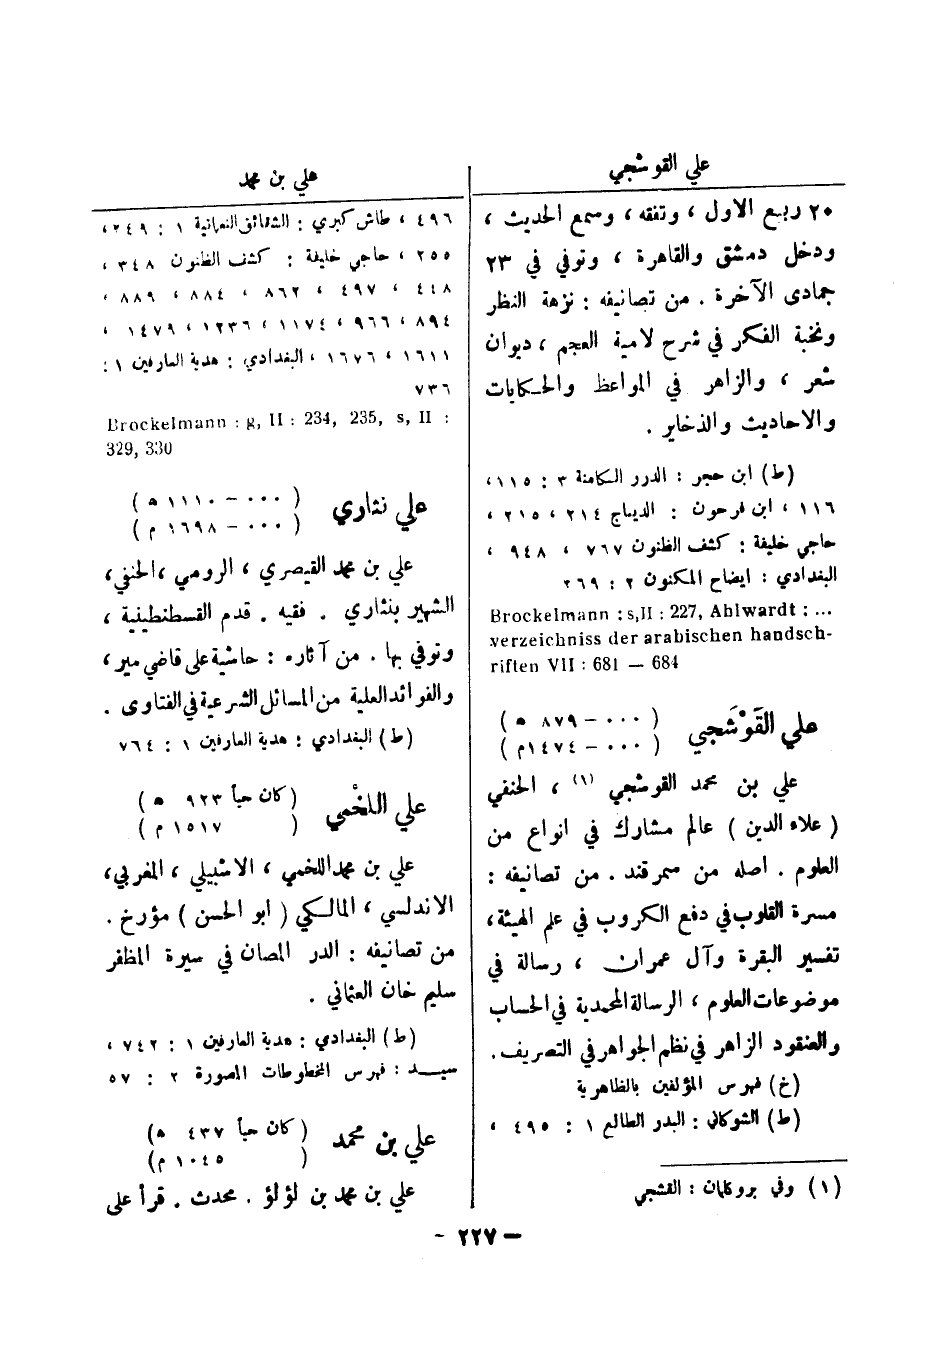 علي القوشجي
٢٠ ربيع الاول ، وتفقه ، وسمع الحديث ،
ودخل دمشق والقاهرة ، وتوفي في ٢٣
جمادى الآخرة . من تصانيفه : نزهة النظر
ونخبة الفكر في شرح لامية العجم ، ديوان
شعر ، والزاهر في المواعظ والحكايات
والاحاديث والذخاير .
(ط) ابن حجر : الدرر الكامنة ٣ : ١١٥،
١١٦ ، ابن فرحون : الديباج ٢١٤ ، ٢١٥ ،
حاجي خليفة : كشف الظنون ٧٦٧ ، ٩٤٨ ،
البغدادي : ايضاح المكنون ٢ : ٢٦٩
Brockelmann : s,II : 227, Ahlwardt : ...
verzeichniss der arabischen handsch-
riften VII : 681 — 684
علي القَوْشَجي
( ٠٠٠ – ٨٧٩ ه )
( ٠٠٠ – ١٤٧٤م )
علي بن محمد القوشجي (١) ، الحنفي
( علاء الدين ) عالم مشارك في انواع من
العلوم . اصله من سمرقند . من تصانيفه :
مسرة القلوب في دفع الكروب في علم الهيئة،
تفسير البقرة وآل عمران ، رسالة في
موضوعات العلوم ، الرسالة المحمدية في الحساب
والعنقود الزاهر في نظم الجواهر في التصريف.
(خ) فهرس المؤلفين بالظاهرية
(ط) الشوكاني : البدر الطالع ١ : ٤٩٥ ،
(١) وفي بروكلمان : القشجي
علي بن محمد
٤٩٦ ، طاش كبري : الشقائق النعمانية ١ : ٢٤٩،
٢٥٥ ، حاجي خليفة : كشف الظنون ٣٤٨ ،
٤٤٨ ، ٤٩٧ ، ٨٦٢ ، ٨٨٤ ، ٨٨٩ ،
٨٩٤ ، ٩٦٦ ، ١١٧٤ ، ١٢٣٦ ، ١٤٧٩ ،
١٦١١ ، ١٦٧٦ ، البغدادي : هدية العارفين ١ :
٧٣٦
Brockelmann : g, II : 234, 235, s, II :
329, 330
علي نثاري
( ٠٠٠ – ١١١٠ ه )
( ٠٠٠ – ١٦٩٨ م )
علي بن محمد القيصري ، الرومي ، الحنفي ،
الشهير بنثاري . فقيه . قدم القسطنطينية ،
وتوفي بها . من آثاره : حاشية على قاضي مير ،
والفوائد العلية من المسائل الشرعية في الفتاوى .
(ط) البغدادي : هدية العارفين ١ : ٧٦٤
علي اللخْمي
( كان حياً ٩٢٣ ه )
( ١٥١٧ م )
علي بن محمد اللخمي ، الاشبيلي ، المغربي ،
الاندلسي ، المالكي ( ابو الحسن ) مؤرخ .
من تصانيفه : الدر المصان في سيرة المظفر
سليم خان العثماني .
(ط) البغدادي : هدية العارفين ١ : ٧٤٢ ،
سيد : فهرس المخطوطات المصورة ٢ : ٥٧
علي بن محمد
( كان حياً ٤٣٧ ه)
( ١٠٤٥ م)
علي بن محمد بن لؤلؤ . محدث . قرأ على
– ٢٢٧ –